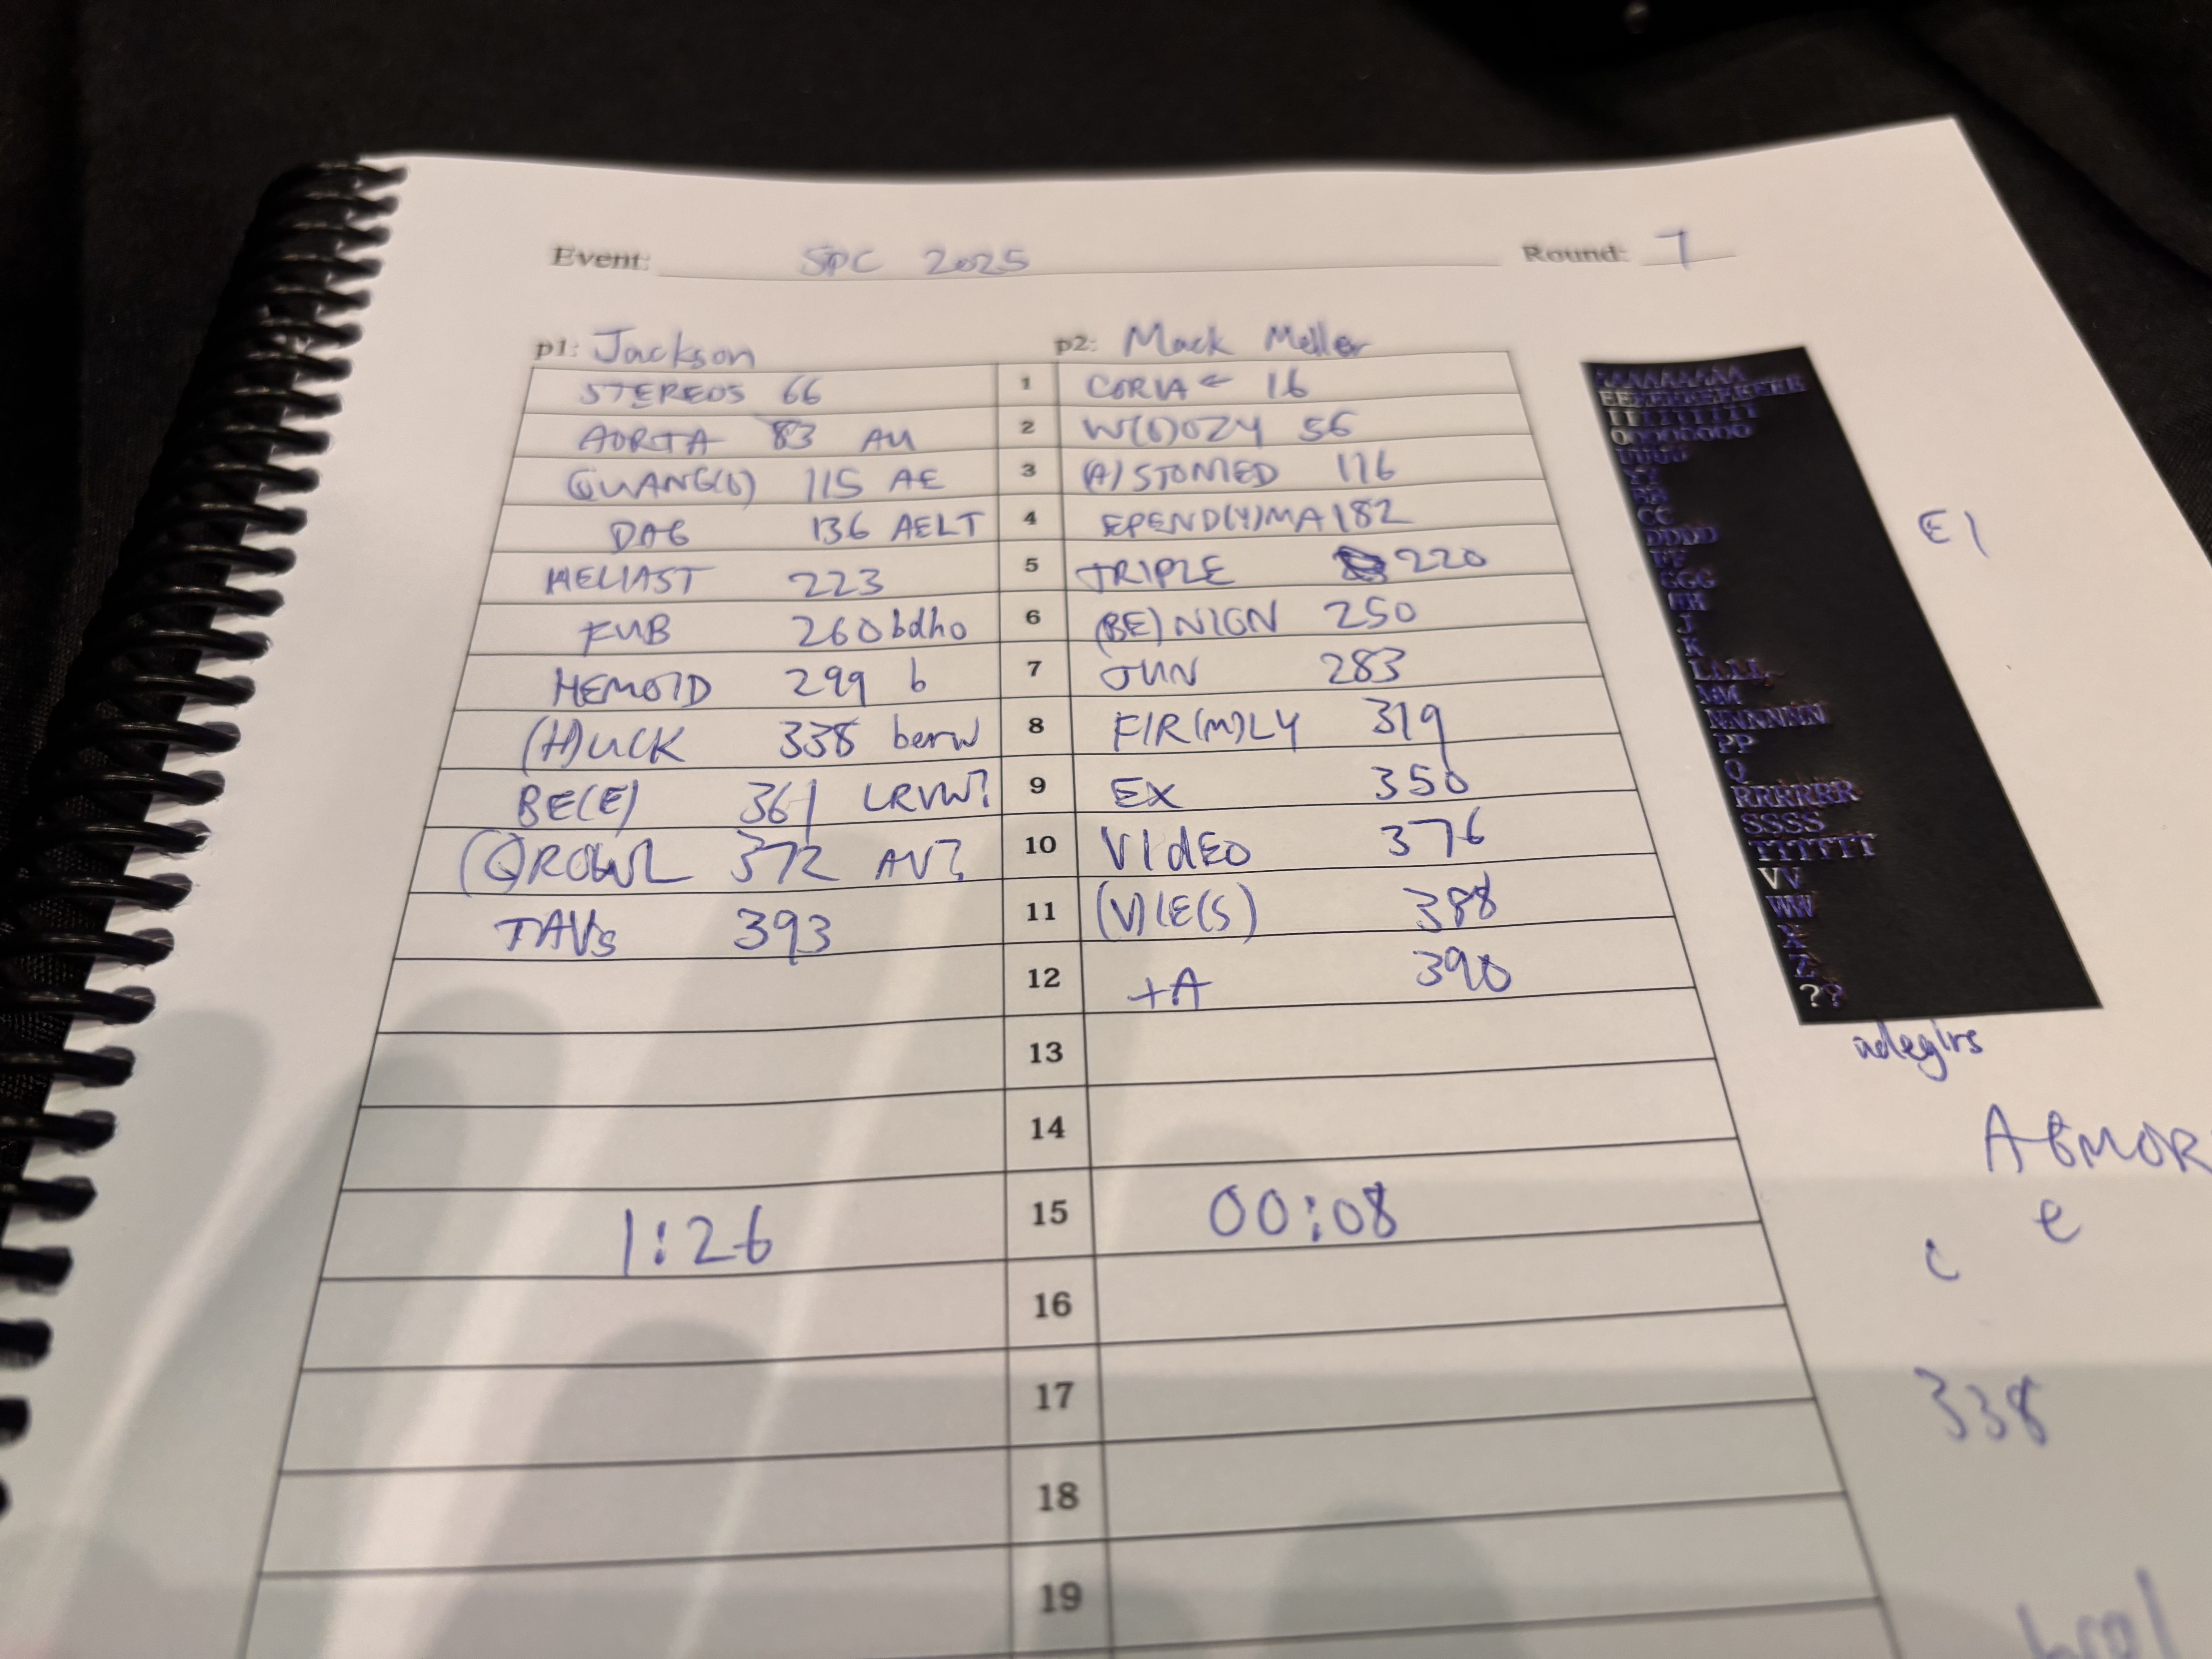 Event: SPC 2025 Round: 7
p1: Jackson p2: Mack Meller
STEREOS 66 1 CORIA ← 16
AORTA 83 AU 2 W(O)OZY 56
QUANG(O) 115 AE 3 (A)STONIED 116
DAG 136 AELT 4 EPEND(Y)MA 182
HELIAST 223 5 TRIPLE 220
FUB 260 bdho 6 (BE)NIGN 250
HEMOID 299 b 7 JUN 283
(H)UCK 338 berw 8 FIR(M)LY 319
BE(E) 361 LRVW? 9 EX 350
(G)ROWL 372 AV? 10 VIdEO 376
TAVs 393 11 (V)IE(S) 388
12 +A 390
13
14
1:26 15 00:08
16
17
18
19
AAAAAAAAA
EEEEEEEEEEEE
IIIIIIIII
OOOOOOOO
UUUU
YY
BB
CC
DDDD
FF
GGG
HH
J
K
LLLL
MM
NNNNNN
PP
Q
RRRRRR
SSSS
TTTTTT
VV
WW
X
Z
??
EI
adeglrs
e
c
338